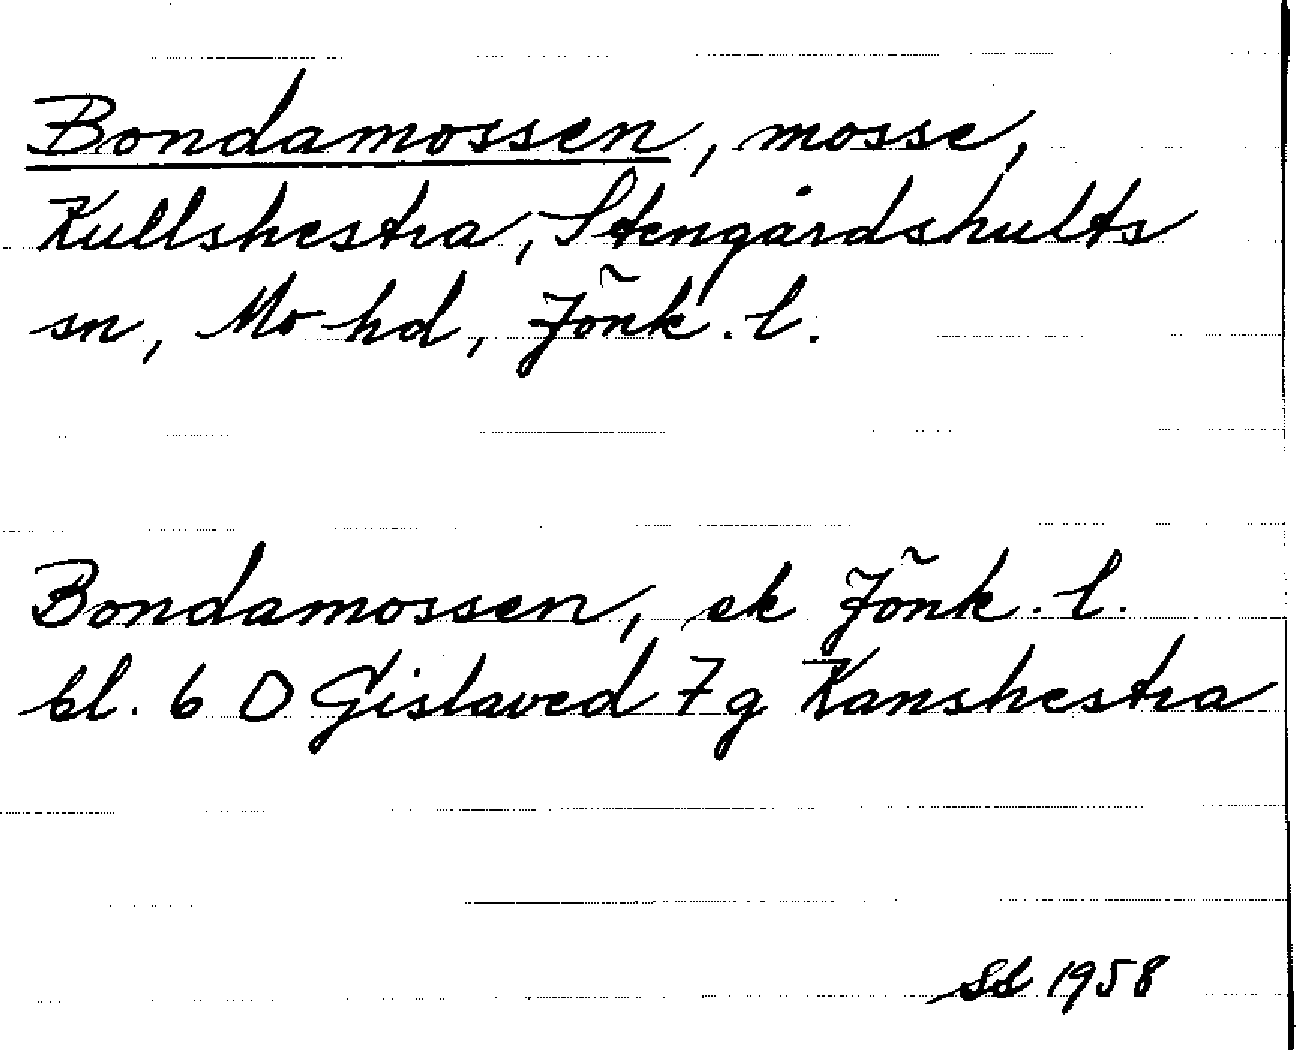 Bondamossen, mosse,
Kullshestra, Stengårdshults
sn, Mo hd, Jönk. l.
Bondamossen, ek Jönk. l.
bl. 6 D Gislaved 7g Kanshestra
SL 1958